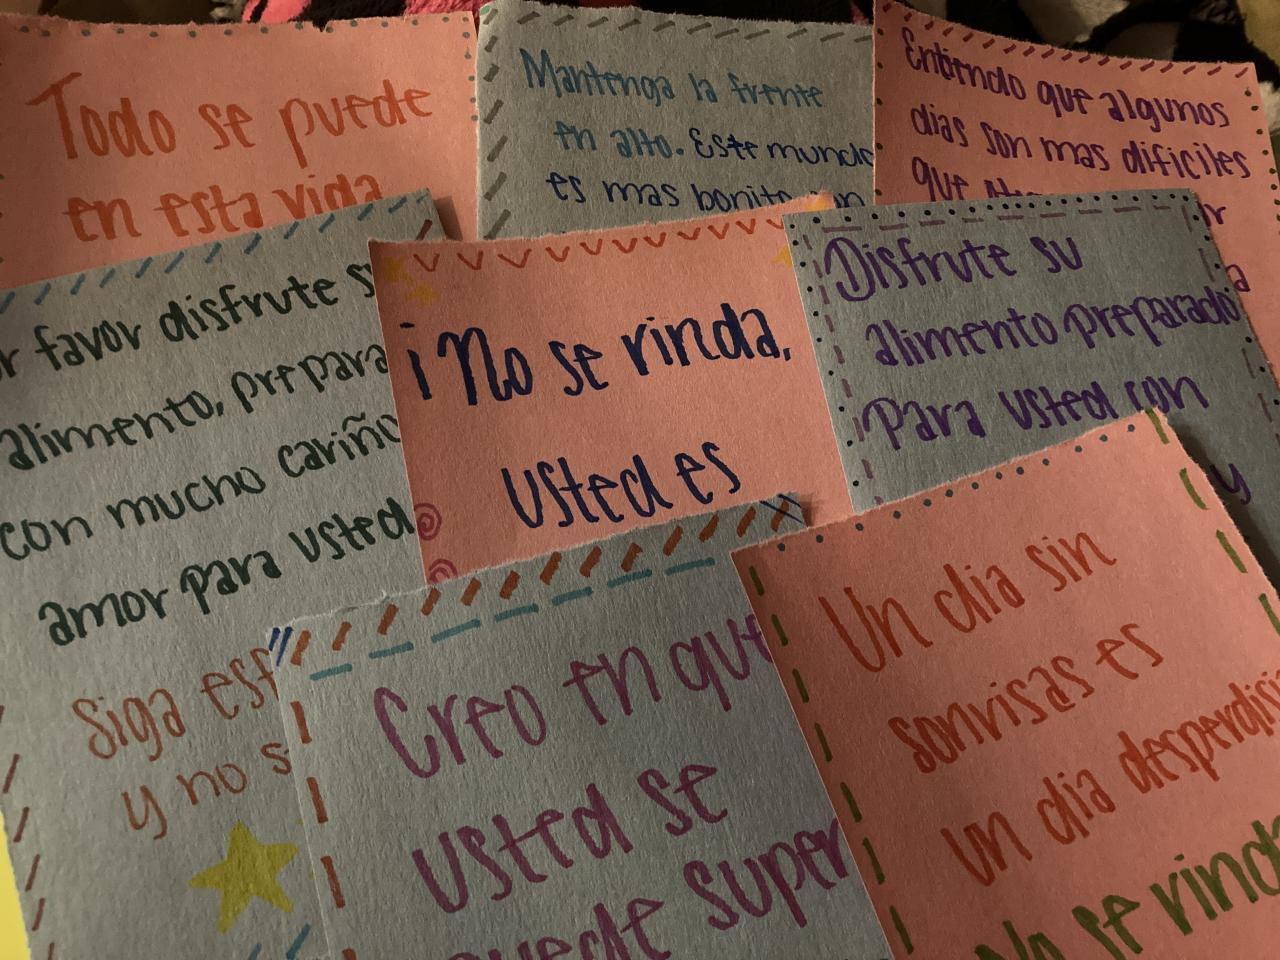 Todo se puede
en esta vida
Mantenga la frente
en alto. Este mundo
es mas bonito
Entiendo que algunos
dias son mas dificiles
que
r favor disfrute s
alimento, prepara
con mucho cariño
amor para usted
Siga esf
y no s
¡No se rinda,
usted es
Disfrute su
alimento preparado
para usted con
y
Creo en que
usted se
puede super
Un dia sin
sonrisas es
un dia desperdisi
No se rind